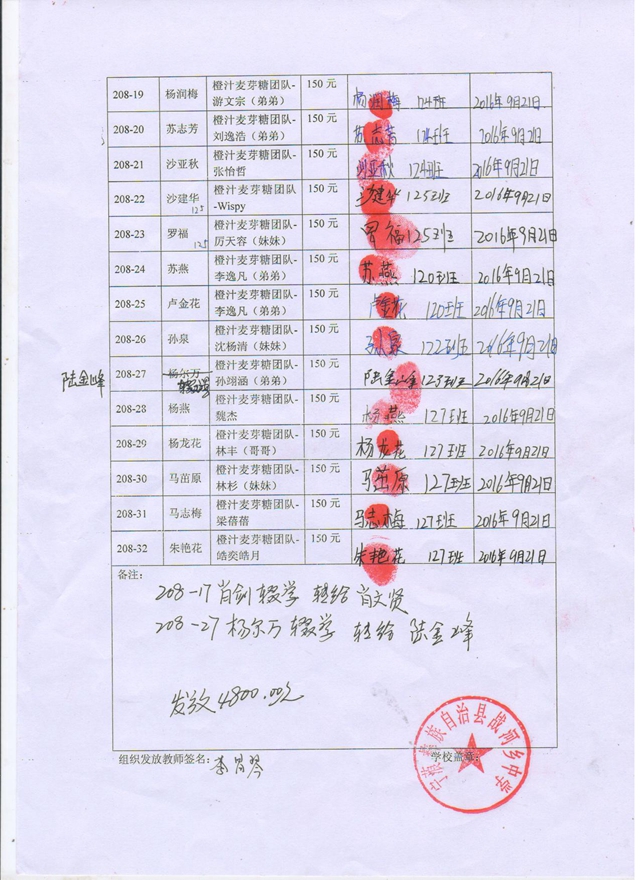 208-19 杨润梅 橙汁麦芽糖团队- 150 元 杨润梅 174班 2016年9月21日
游文宗（弟弟）
208-20 苏志芳 橙汁麦芽糖团队- 150 元 苏志芳 174班 2016年9月21日
刘逸浩（弟弟）
208-21 沙亚秋 橙汁麦芽糖团队- 150 元 沙亚秋 174班 2016年9月21日
张怡哲
208-22 沙建华 橙汁麦芽糖团队 150 元 沙建华 125班 2016年9月21日
125 -Wispy
208-23 罗福 橙汁麦芽糖团队- 150 元 福 125班 2016年9月21日
125 厉天容（妹妹）
208-24 苏燕 橙汁麦芽糖团队- 150 元 苏燕 120班 2016年9月21日
李逸凡（弟弟）
208-25 卢金花 橙汁麦芽糖团队- 150 元 卢金花 120班 2016年9月21日
李逸凡（弟弟）
208-26 孙泉 橙汁麦芽糖团队- 150 元 孙泉 122班 2016年9月21日
沈杨清（妹妹）
陆金峰 208-27 杨尔万 橙汁麦芽糖团队- 150 元 陆金峰 123班 2016年9月21日
辍学 孙翊涵（弟弟）
208-28 杨燕 橙汁麦芽糖团队- 150 元 杨燕 127班 2016年9月21日
魏杰
208-29 杨龙花 橙汁麦芽糖团队- 150 元 杨龙花 127班 2016年9月21日
林丰（哥哥）
208-30 马茁原 橙汁麦芽糖团队- 150 元 马茁原 127班 2016年9月21日
林杉（妹妹）
208-31 马志梅 橙汁麦芽糖团队- 150 元 马志梅 127班 2016年9月21日
梁蓓蓓
208-32 朱艳花 橙汁麦芽糖团队- 150 元 朱艳花 127班 2016年9月21日
皓奕皓月
备注：
208-17 肖剑 辍学 转给 肖文贤
208-27 杨尔万 辍学 转给 陆金峰
发放4800.00元
组织发放教师签名： 学校盖章：
宁蒗彝族自治县战河乡中学